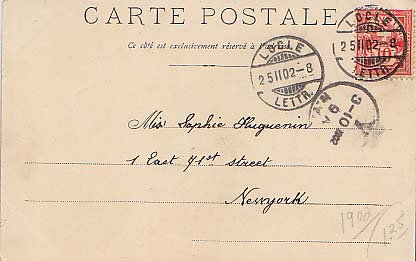 CARTE POSTALE
Ce côté est exclusivement réservé à l'adresse
LOCLE
25 II 02-8
LETTR.
LOCLE
25 II 02-8
LETTR.
10
3-10
9 A
Miss Sophie Huguenin
1 East 71st street
Newyork
1900
125